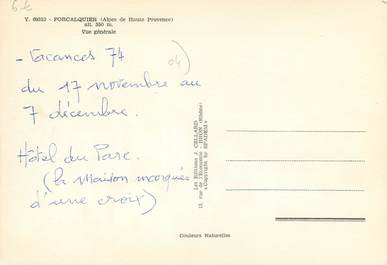 6 €
Y. 69353 - FORCALQUIER (Alpes de Haute Provence)
alt. 550 m.
Vue générale
- Vacances 74
(04)
du 17 novembre au
7 décembre.
Hôtel du Parc.
(la Maison marquée
d'une croix)
Les Editions J. CELLARD
15, rue de l'Economie - BRON (Rhône)
«Copyright by SPADEM»
Couleurs Naturelles